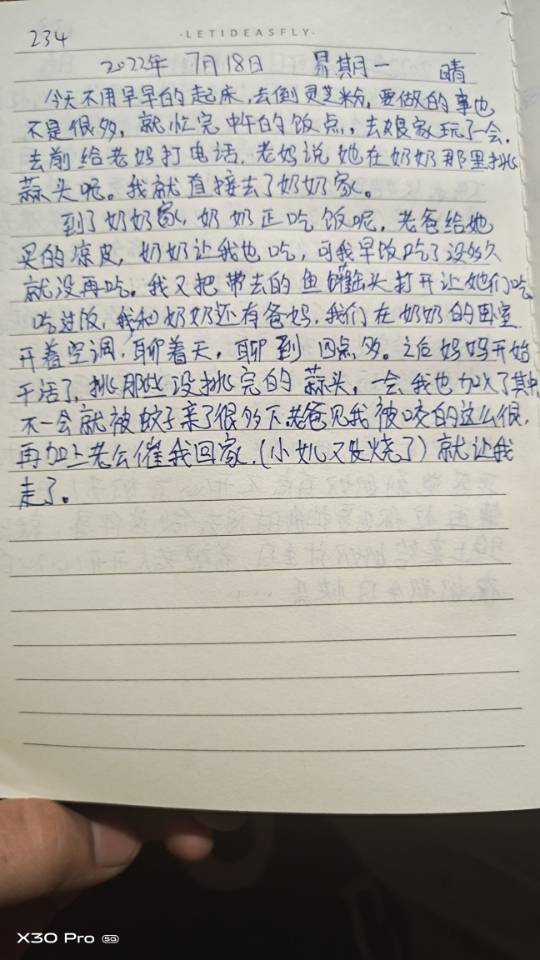 234
·LETIDEASFLY·
2022年 7月18日 星期一 晴
今天不用早早的起床,去倒灵芝粉,要做的事也
不是很多,就忙完中午的饭点,去娘家玩了一会,
去前给老妈打电话,老妈说她在奶奶那里挑
蒜头呢。我就直接去了奶奶家。
到了奶奶家,奶奶正吃饭呢,老爸给她
买的凉皮,奶奶让我也吃,可我早饭吃了没多久
就没再吃。我又把带去的鱼罐头打开让她们吃
吃过饭,我和奶奶还有爸妈,我们在奶奶的卧室
开着空调,聊着天,聊到四点多。之后妈妈开始
干活了,挑那些没挑完的蒜头,一会我也加入了其中
不一会就被蚊子亲了很多下老爸见我被咬的这么狠,
再加上老公催我回家,(小儿又发烧了)就让我
走了。
X30 Pro 5G